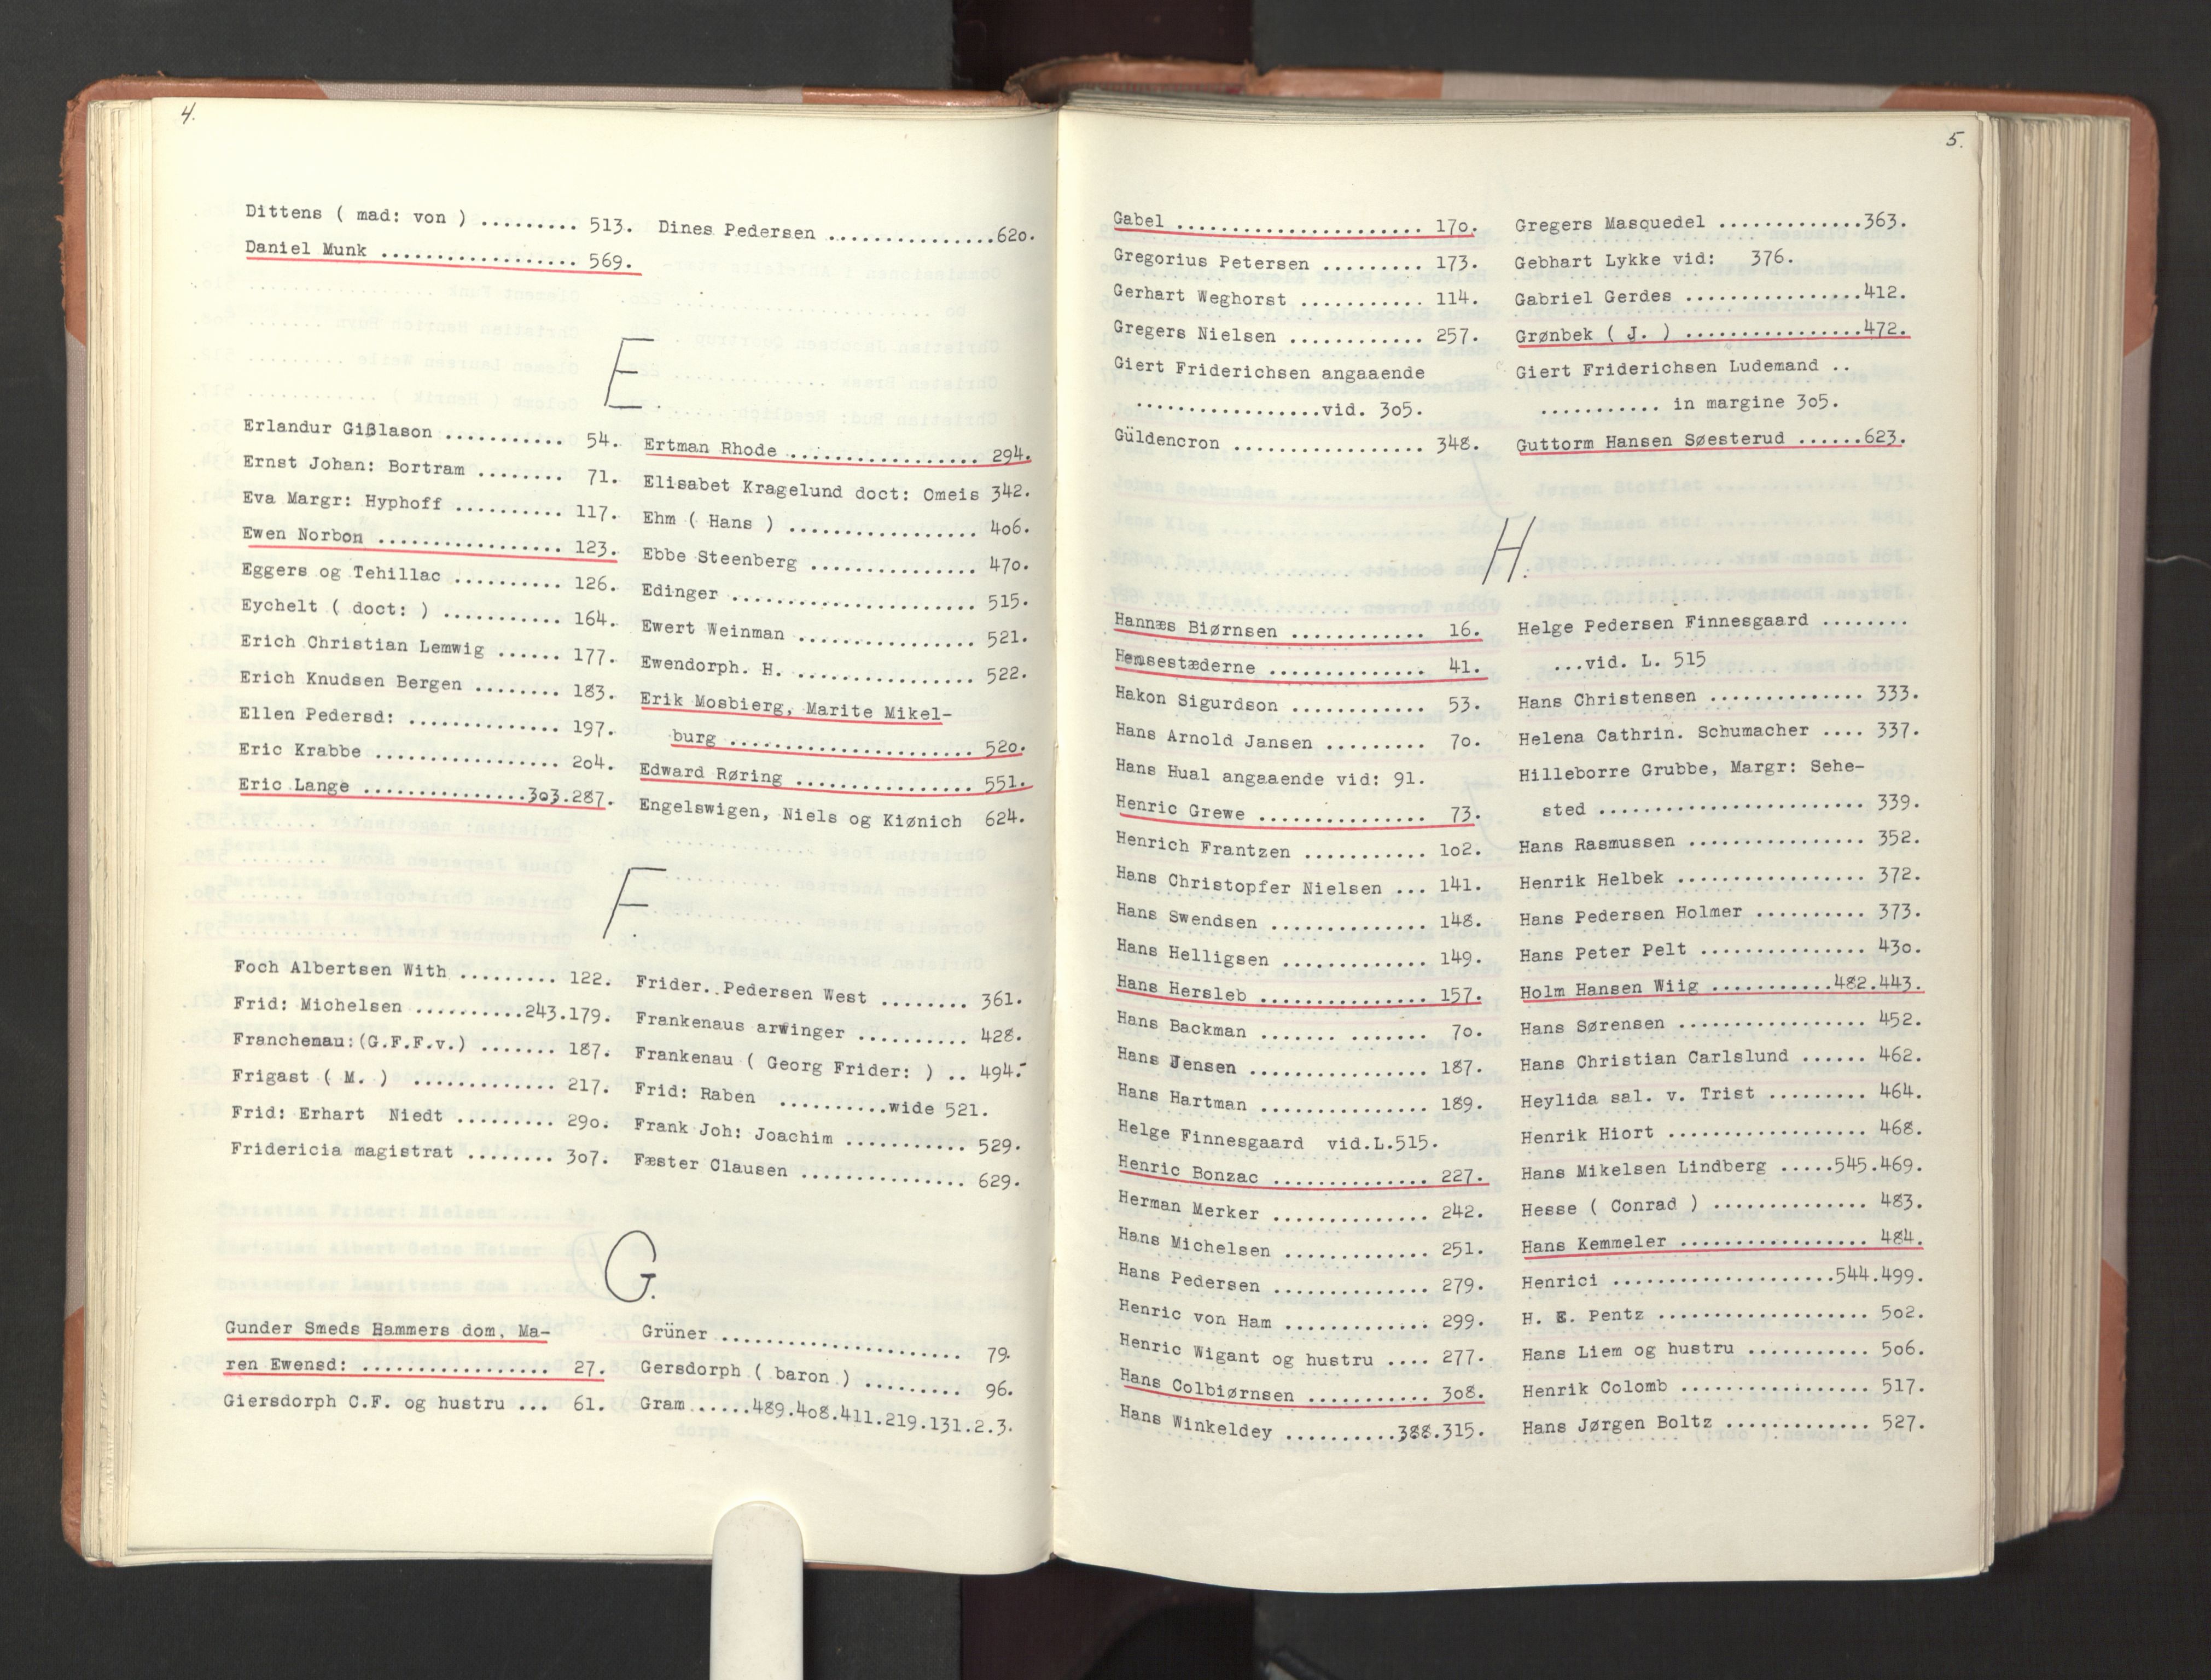 4.
Dittens ( mad: von ) ......... 513.
Daniel Munk .................. 569.
Dines Pedersen ...............620.
E.
Erlandur Gißlason ........... 54.
Ernst Johan: Bortram ........ 71.
Eva Margr: Hyphoff .......... 117.
Ewen Norbon ................. 123.
Eggers og Tehillac .......... 126.
Eychelt ( doct: ) ........... 164.
Erich Christian Lemwig ...... 177.
Erich Knudsen Bergen ........ 183.
Ellen Pedersd: .............. 197.
Eric Krabbe ................. 204.
Eric Lange ...............303.287.
Ertman Rhode .................. 294.
Elisabet Kragelund doct: Omeis 342.
Ehm ( Hans ) .................. 406.
Ebbe Steenberg ................ 470.
Edinger ....................... 515.
Ewert Weinman ................. 521.
Ewendorph. H. ................. 522.
Erik Mosbierg, Marite Mikel-
burg ....................... 520.
Edward Røring ................. 551.
Engelswigen, Niels og Kiønich 624.
F.
Foch Albertsen With ......... 122.
Frid: Michelsen ..........243.179.
Franchenau:(G.F.F.v.) ....... 187.
Frigast ( M. ) ............. 217.
Frid: Erhart Niedt ......... 290.
Fridericia magistrat ........ 307.
Frider. Pedersen West ........ 361.
Frankenaus arwinger .......... 428.
Frankenau ( Georg Frider: ) .. 494.
Frid: Raben ..........wide 521.
Frank Joh: Joachim ........... 529.
Fæster Clausen ............... 629.
G.
Gunder Smeds Hammers dom, Ma-
ren Ewensd: ................. 27.
Giersdorph C.F. og hustru ... 61.
Grüner ....................... 79.
Gersdorph ( baron ) ......... 96.
Gram ......489.408.411.219.131.2.3.
5.
Gabel ...................... 170.
Gregorius Petersen ......... 173.
Gerhart Weghorst ........... 114.
Gregers Nielsen ............ 257.
Giert Friderichsen angaaende
.................vid. 305.
Güldencron ................. 348.
Gregers Masquedel .............363.
Gebhart Lykke vid: 376.
Gabriel Gerdes ................412.
Grønbek ( J. ) ................472.
Giert Friderichsen Ludemand ..
........... in margine 305.
Guttorm Hansen Søesterud ......623.
H.
Hannæs Biørnsen ............ 16.
Hemsestæderne .............. 41.
Hakon Sigurdson ............ 53.
Hans Arnold Jansen ......... 70.
Hans Hual angaaende vid: 91.
Henric Grewe ............... 73.
Henrich Frantzen ........... 102.
Hans Christopfer Nielsen ... 141.
Hans Swendsen .............. 148.
Hans Helligsen ............. 149.
Hans Hersleb ............... 157.
Hans Backman ....... ....... 70.
Hans Jensen ................ 187.
Hans Hartman ............... 189.
Helge Finnesgaard vid.L.515.
Henric Bonzac .............. 227.
Herman Merker .............. 242.
Hans Michelsen ............. 251.
Hans Pedersen .............. 279.
Henric von Ham ............. 299.
Henric Wigant og hustru .... 277.
Hans Colbiørnsen ........... 308.
Hans Winkeldey ..........388.315.
Helge Pedersen Finnesgaard ........
...vid. L. 515
Hans Christensen .............. 333.
Helena Cathrin. Schumacher .... 337.
Hilleborre Grubbe, Margr: Sehe-
sted ........................ 339.
Hans Rasmussen ................ 352.
Henrik Helbek ................. 372.
Hans Pedersen Holmer .......... 373.
Hans Peter Pelt ............... 430.
Holm Hansen Wiig ...........482.443.
Hans Sørensen ................. 452.
Hans Christian Carlslund ...... 462.
Heylida sal. v. Trist ......... 464.
Henrik Hiort .................. 468.
Hans Mikelsen Lindberg .....545.469.
Hesse ( Conrad ) .............. 483.
Hans Kemmeler ................. 484.
Henrici ....................544.499.
H. E. Pentz ................... 502.
Hans Liem og hustru ........... 506.
Henrik Colomb ................. 517.
Hans Jørgen Boltz ............. 527.